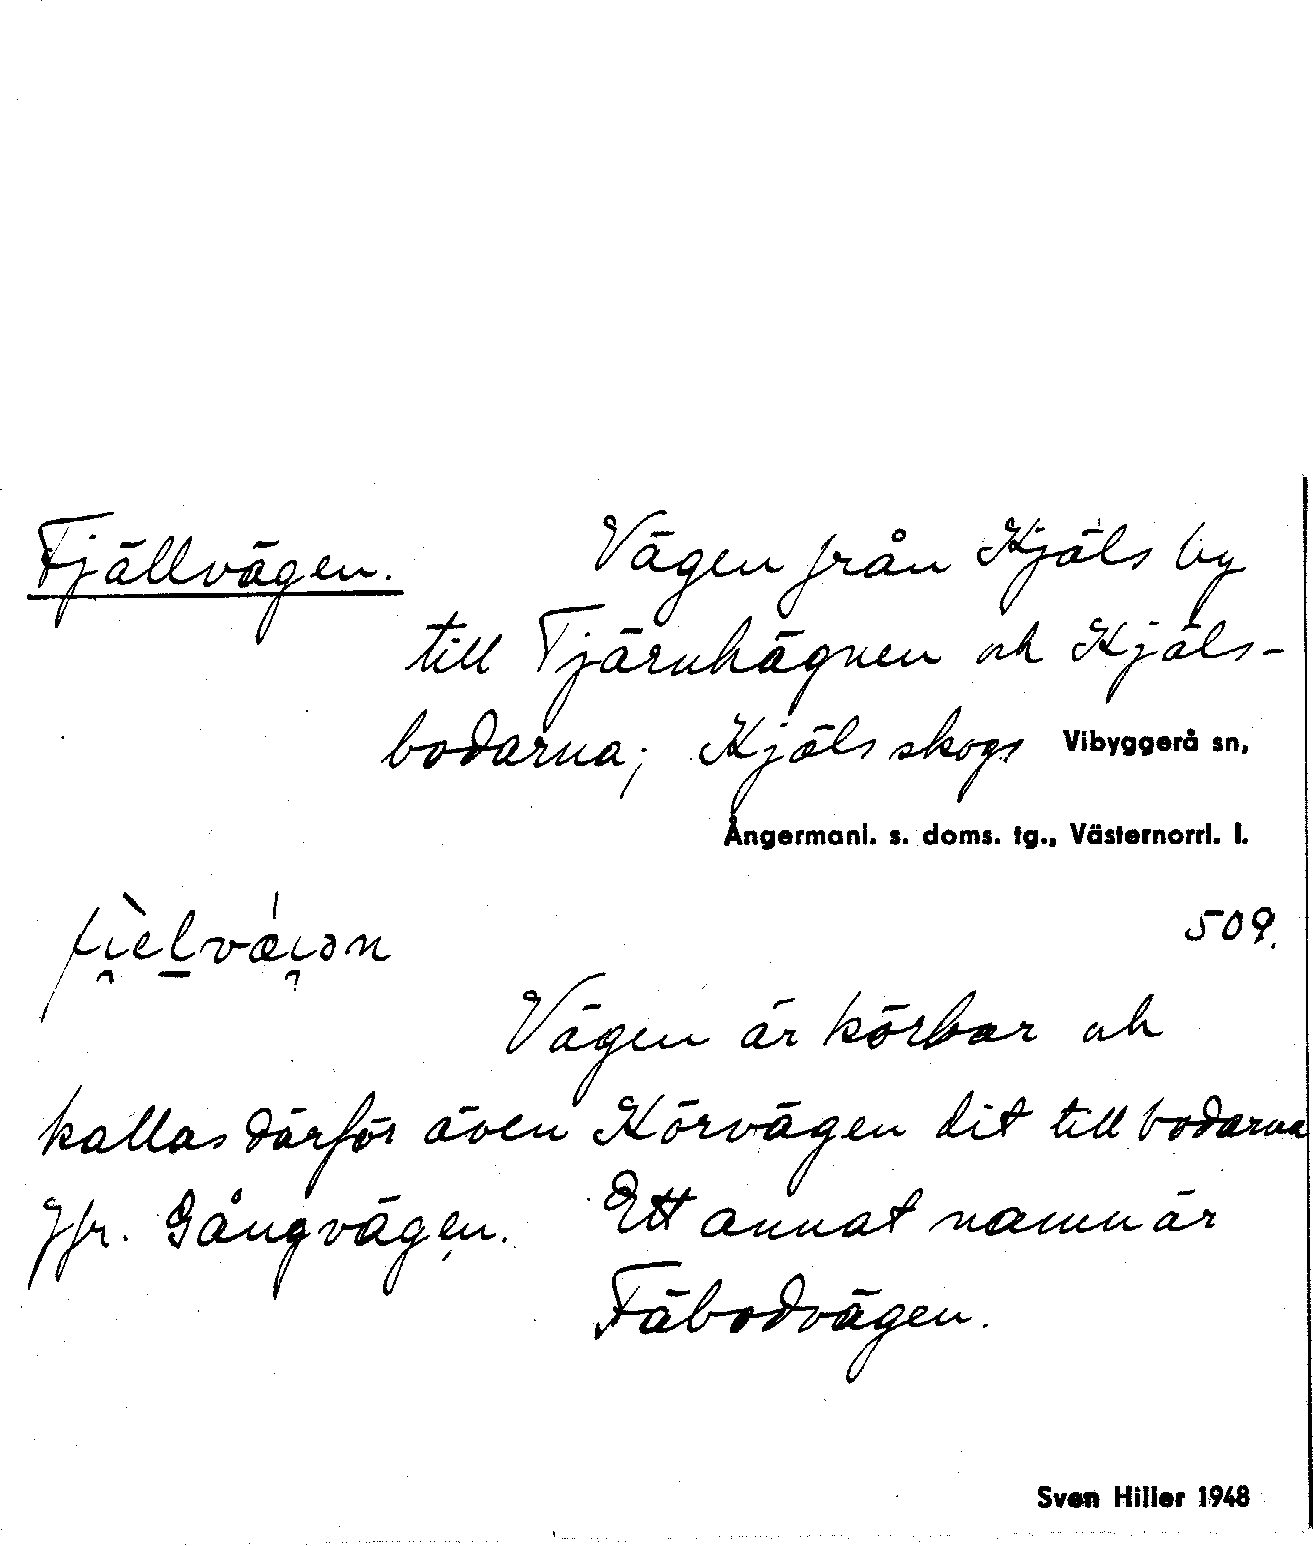 Fjällvägen. Vägen från Kjäls by
till Tjärnhägnen och Kjäls-
bodarna; Kjäls skogs Vibyggerå sn,
Ångermanl. s. doms. tg., Västernorrl. l.
509.
Vägen är körbar och
kallas därför även Körvägen dit till bodarna
Jfr. Gångvägen. Ett annat namn är
Fäbodvägen.
Sven Hiller 1948